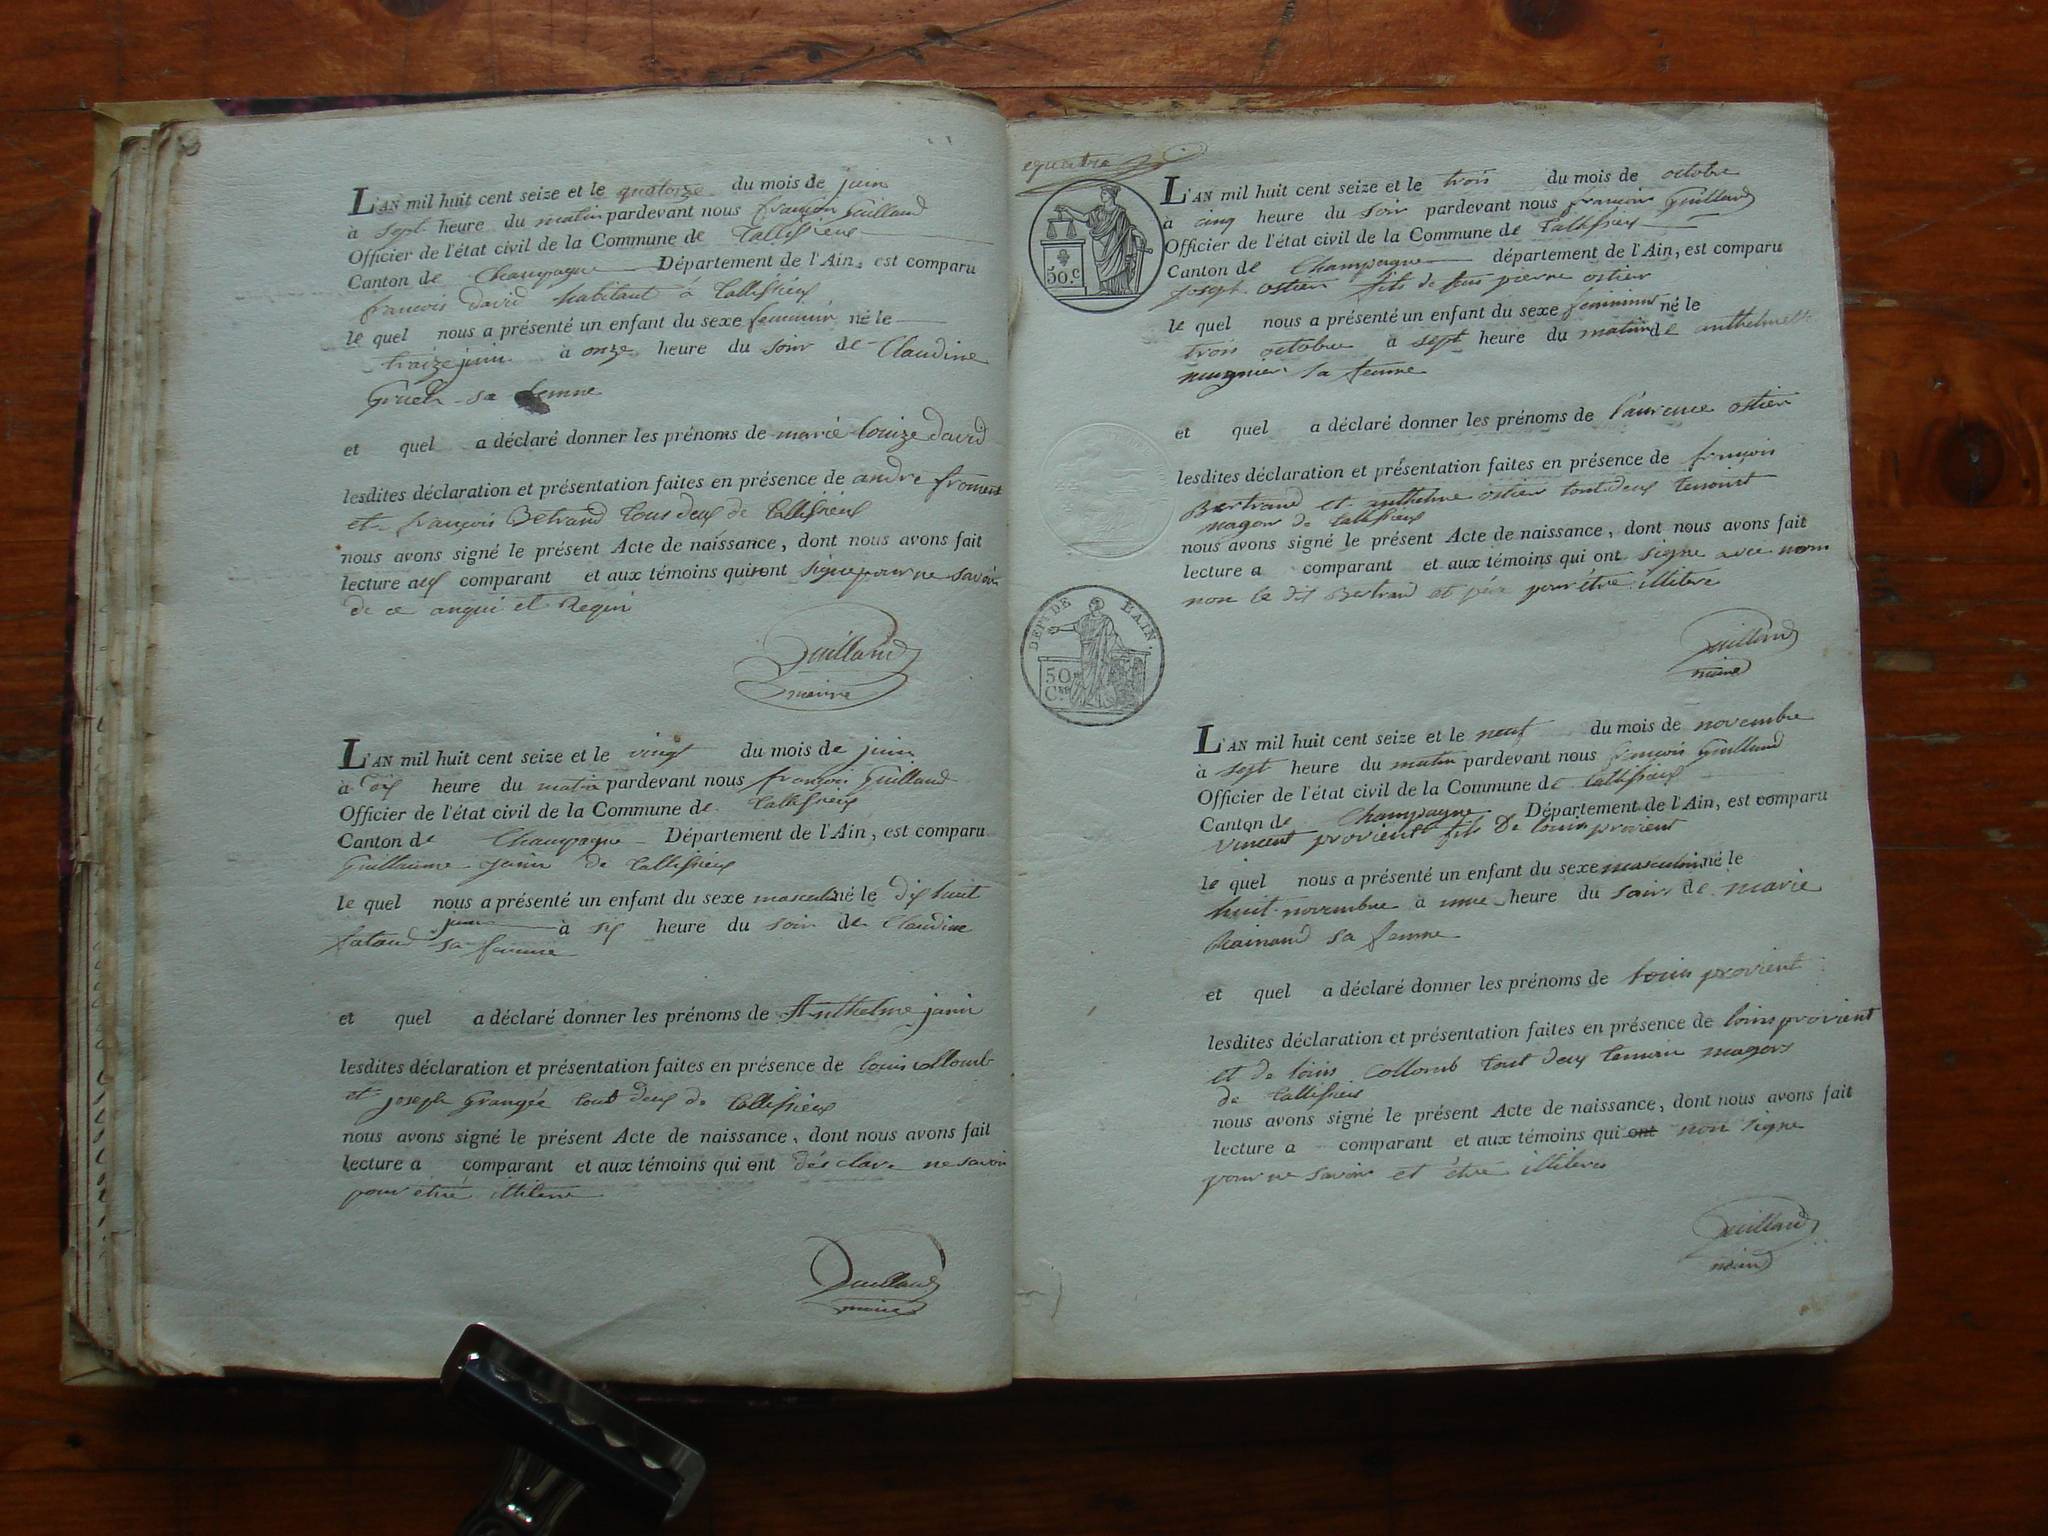 L'AN mil huit cent seize et le quatorze du mois de juin
à sept heure du matin pardevant nous françois Guilland
Officier de l'état civil de la Commune de tallissieux
Canton de Champagne Département de l'Ain, est comparu
françois david habitant à tallissieux
le quel nous a présenté un enfant du sexe feminin né le
traize juin à onze heure du soir de Claudine
sa femme
et quel a déclaré donner les prénoms de marie louize david
lesdites déclaration et présentation faites en présence de andré froment
et françois Betrand tous deux de tallissieux
nous avons signé le présent Acte de naissance, dont nous avons fait
lecture aux comparant et aux témoins qui ont signe pour ne savoir
de ce anqui et Requi
Guilland
maire
L'AN mil huit cent seize et le vingt du mois de juin
à heure du matin pardevant nous françois Guilland
Officier de l'état civil de la Commune de tallissieux
Canton de Champagne Département de l'Ain, est comparu
Guillaume janin de tallissieux
le quel nous a présenté un enfant du sexe masculin né le dix huit
juin à six heure du soir de Claudine
sa femme
et quel a déclaré donner les prénoms de Anthelme janin
lesdites déclaration et présentation faites en présence de louis collomb
et joseph Grangée tout deux de tallissieux
nous avons signé le présent Acte de naissance, dont nous avons fait
lecture a comparant et aux témoins qui ont désclare ne savoir
pour être illitere
Guilland
maire
quatre
50.c
L'AN mil huit cent seize et le trois du mois de octobre
à cinq heure du soir pardevant nous francois Guilland
Officier de l'état civil de la Commune de tallissieux
Canton de Champagne département de l'Ain, est comparu
joseph ostier fils de feu pierre ostier
le quel nous a présenté un enfant du sexe feminin né le
trois octobre à sept heure du matin de anthelmette
mugnier sa femme
et quel a déclaré donner les prénoms de laurence ostier
lesdites déclaration et présentation faites en présence de françois
Bertrand et anthelme ostier tout deux temoint
magor de tallissieux
nous avons signé le présent Acte de naissance, dont nous avons fait
lecture a comparant et aux témoins qui ont signe avec nous
non le dit Bertrand et pour être illitere
DEPT DE L'AIN.
50
Cmes
Guilland
maire
L'AN mil huit cent seize et le neuf du mois de novembre
à sept heure du matin pardevant nous françois Guilland
Officier de l'état civil de la Commune de tallissieux
Canton de Champagne Département de l'Ain, est comparu
vincent provient fils De louis provient
le quel nous a présenté un enfant du sexe masculin né le
huit novembre à une heure du soir de marie
Rainand sa femme
et quel a déclaré donner les prénoms de louis provient
lesdites déclaration et présentation faites en présence de louis provient
et de louis Collomb tout deux temoin magors
de tallissieux
nous avons signé le présent Acte de naissance, dont nous avons fait
lecture a comparant et aux témoins qui ont non signe
pour ne savoir et être illitere
Guilland
maire